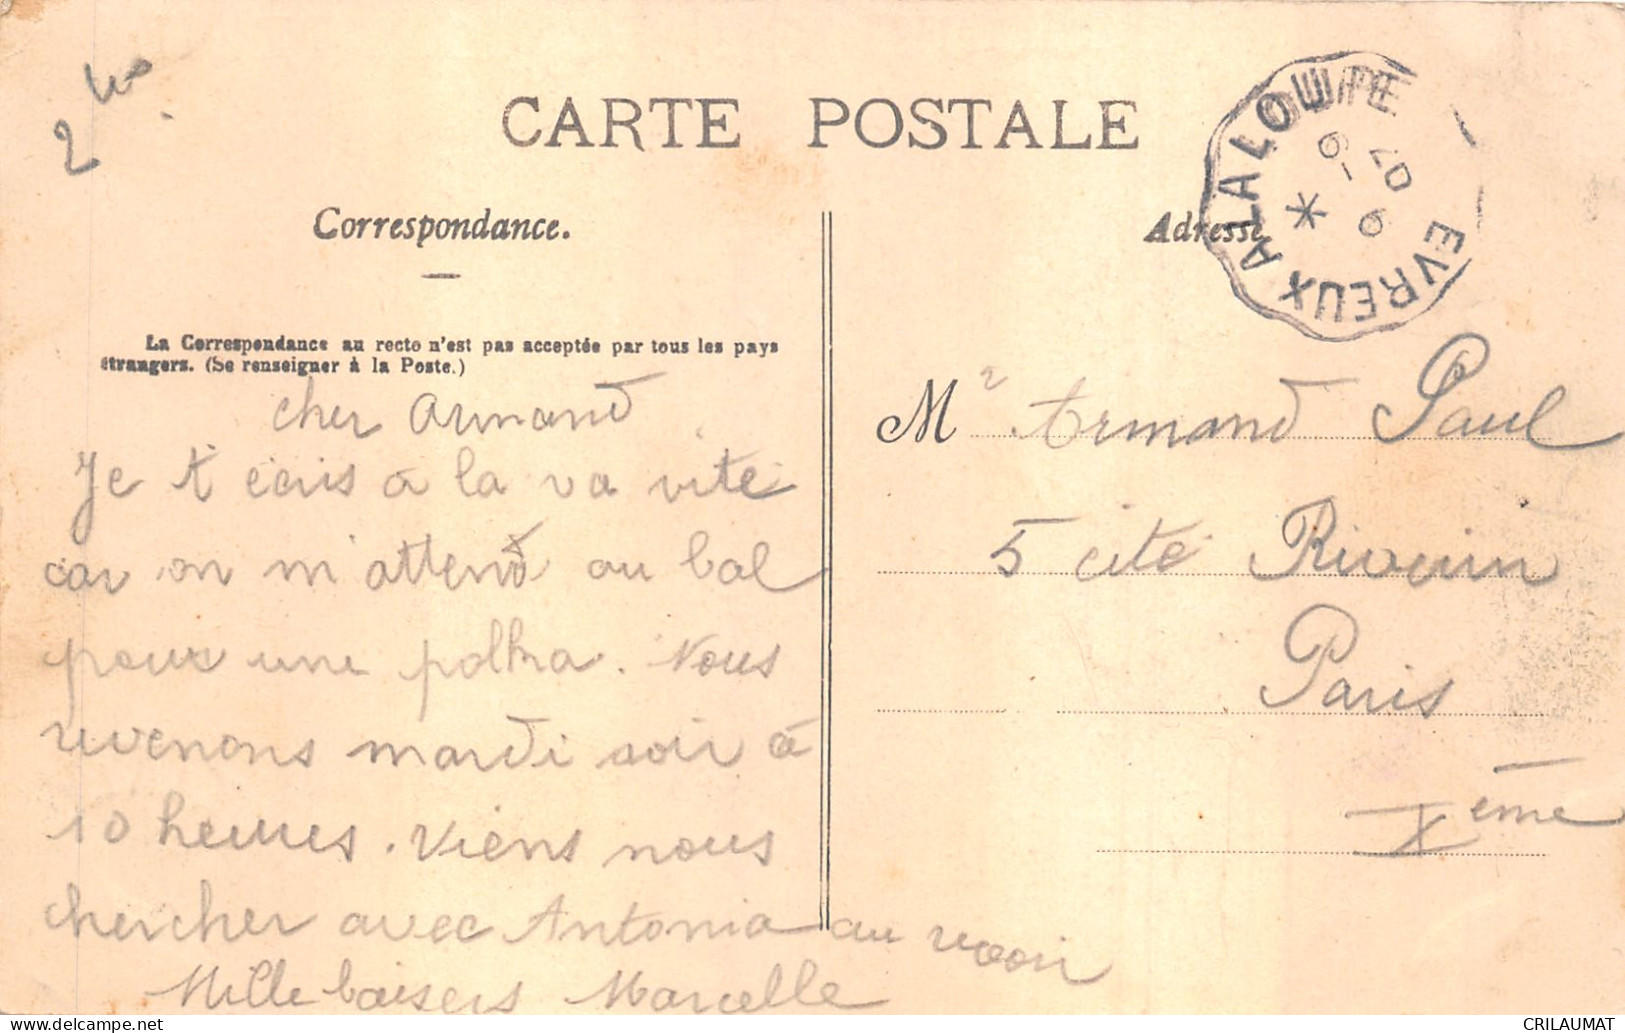 2
CARTE POSTALE
EVREUX A LA LOUPE
6 - 9
07
*
Correspondance.
Adresse
La Correspondance au recto n'est pas acceptée par tous les pays
étrangers. (Se renseigner à la Poste.)
cher Armand
Je t'écris à la va vite
car on m'attend au bal
pour une polka. Nous
revenons mardi soir à
10 heures. Viens nous
chercher avec Antonia au revoir
Mille baisers Marcelle
Mr Armand Paul
5 cité Riverin
Paris
Xème
CRILAUMAT